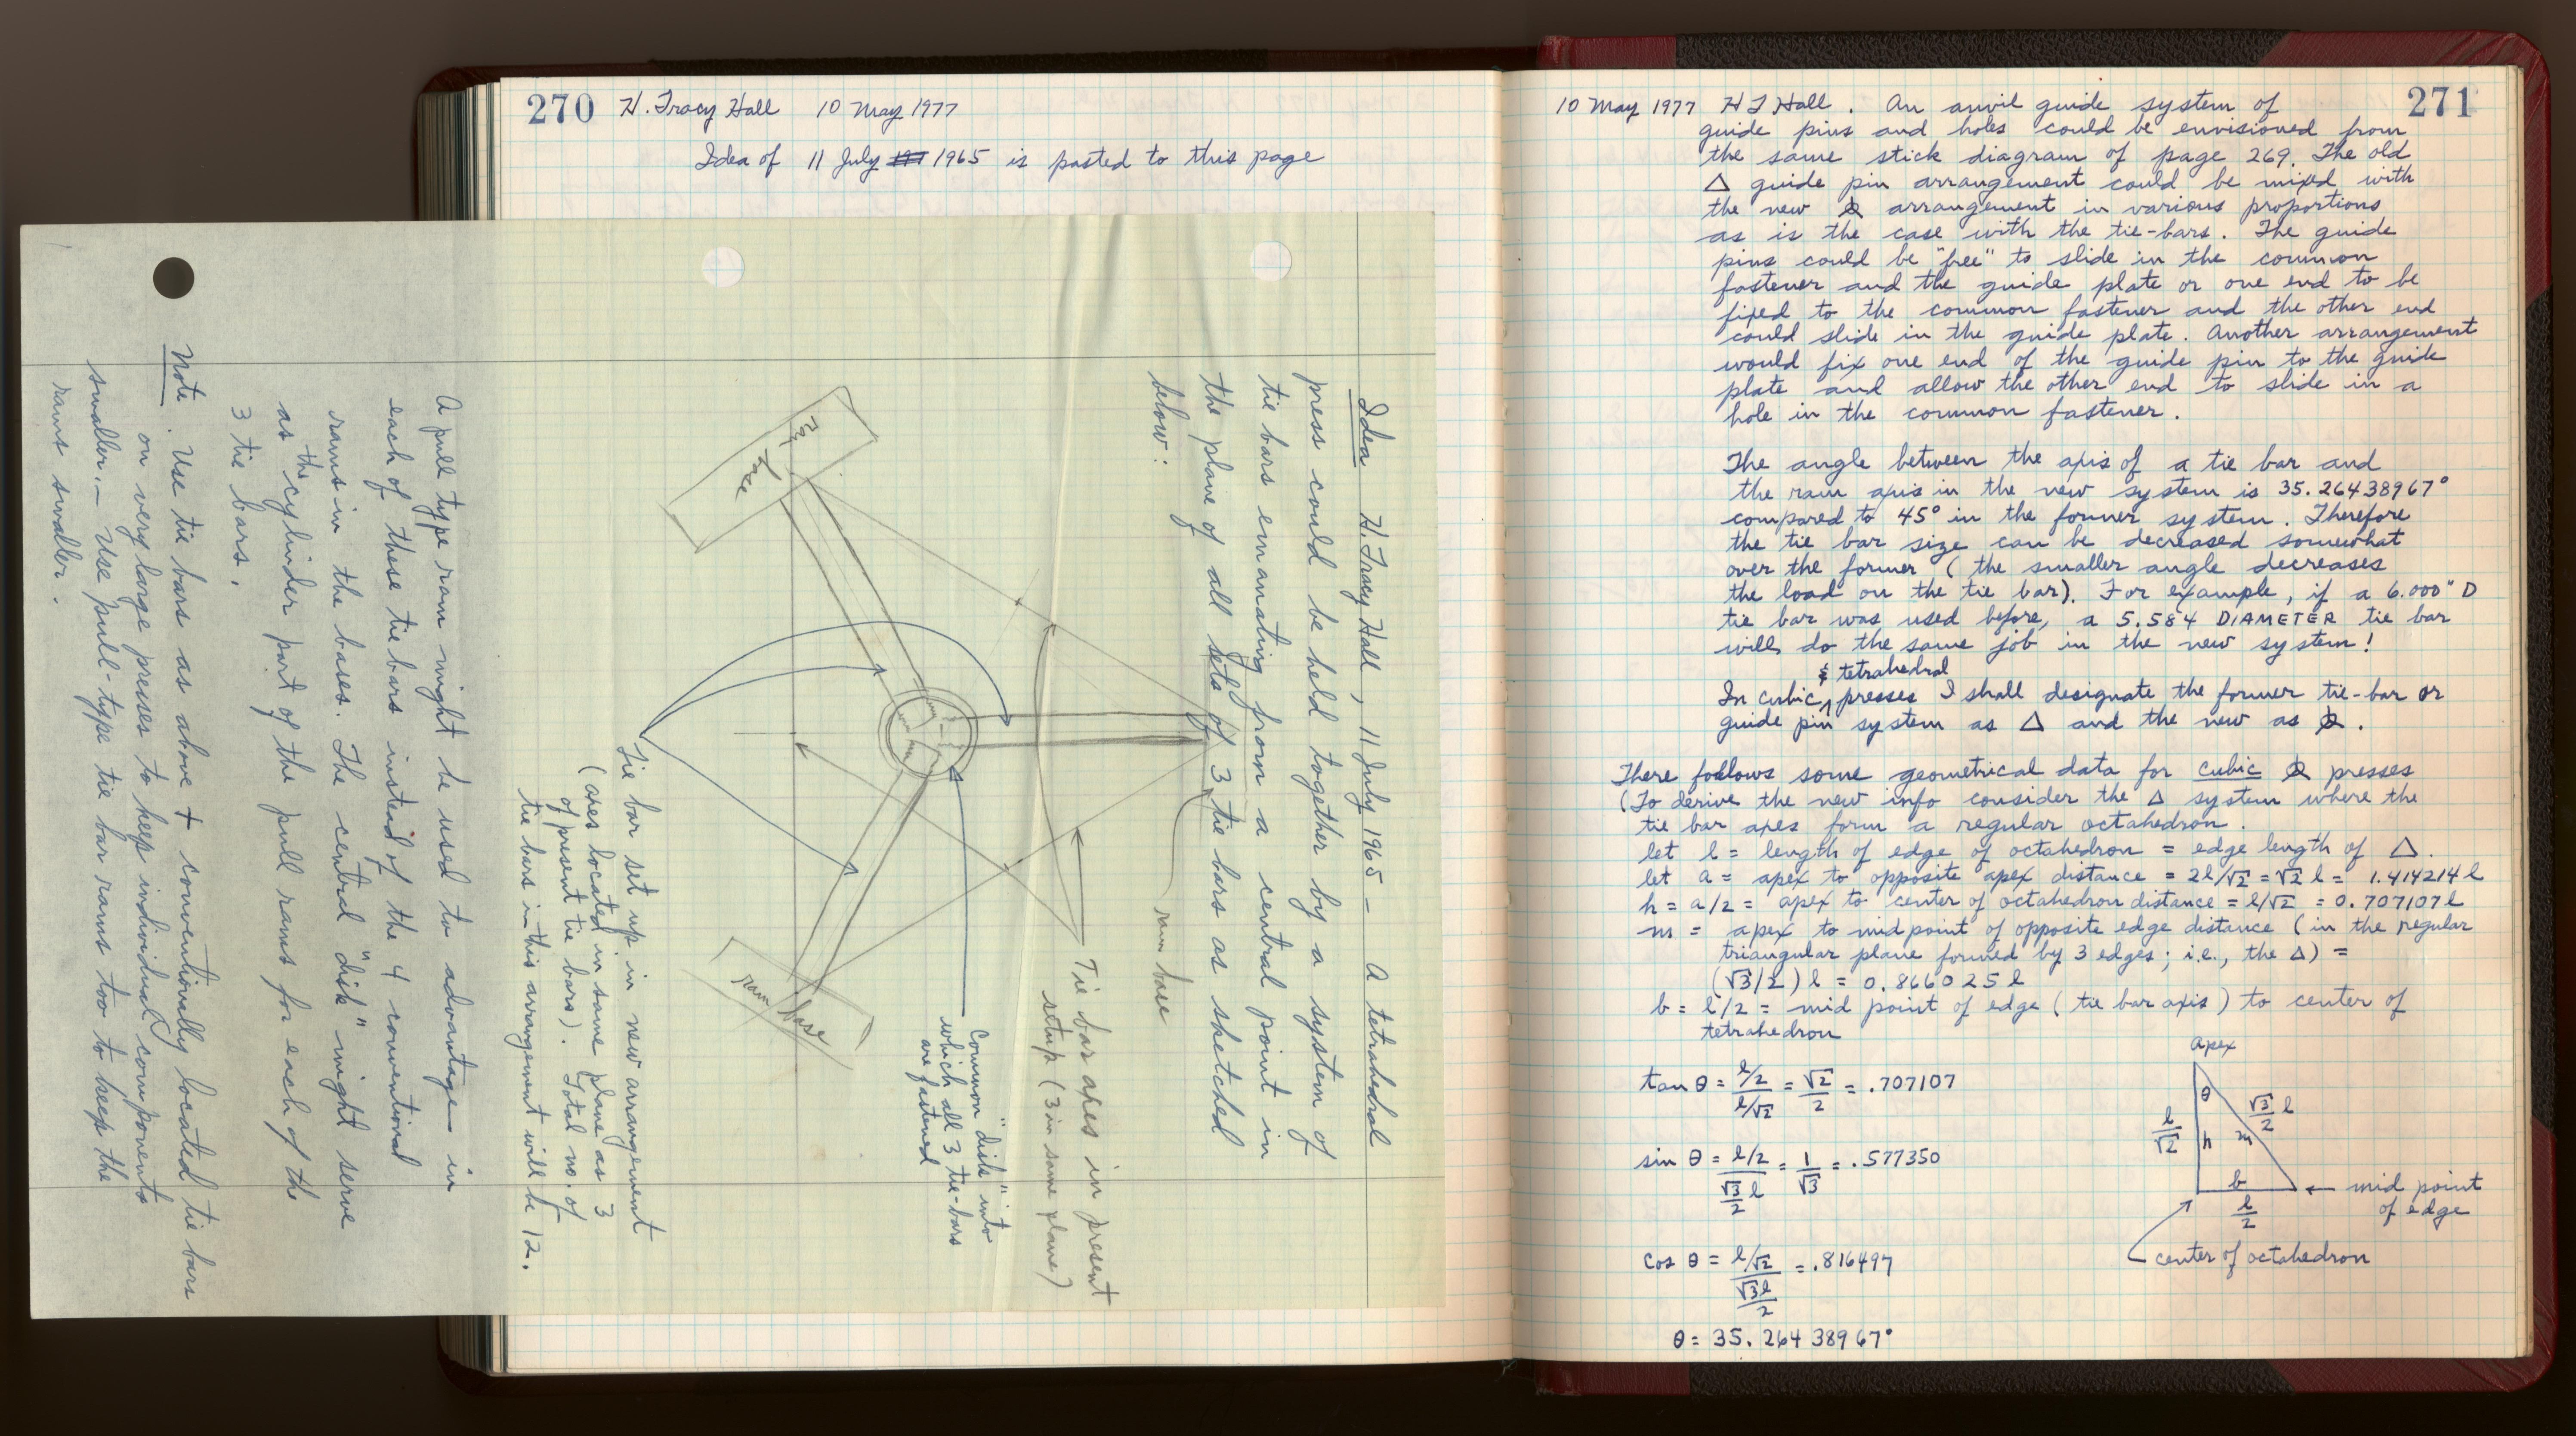 270 H. Tracy Hall 10 May 1977
Idea of 11 July 1965 is pasted to this page
Idea H. Tracy Hall, 11 July 1965 – A tetrahedral
press could be held together by a system of
tie bars emanating from a central point in
the plane of all sets of 3 tie bars as sketched
below:
ram base
ram base
ram base
Tie bar axes in present
setup (3 in same plane)
Common "disk" into
which all 3 tie-bars
are fastened
Tie bar set up in new arrangement
(axes located in same plane as 3
of present tie bars). Total no. of
tie bars in this arrangement will be 12.
A pull type ram might be used to advantage in
each of these tie bars instead of the 4 conventional
rams in the bases. The central "disk" might serve
as the cylinder part of the pull rams for each of the
3 tie bars.
Note. Use tie bars as above + conventionally located tie bars
on very large presses to keep individual components
smaller. – Use pull-type tie bar rams too to keep the
rams smaller.
271
10 May 1977 H T Hall. An anvil guide system of
guide pins and holes could be envisioned from
the same stick diagram of page 269. The old
Δ guide pin arrangement could be mixed with
the new arrangement in various proportions
as is the case with the tie-bars. The guide
pins could be "free" to slide in the common
fastener and the guide plate or one end to be
fixed to the common fastener and the other end
could slide in the guide plate. Another arrangement
would fix one end of the guide pin to the guide
plate and allow the other end to slide in a
hole in the common fastener.
The angle between the axis of a tie bar and
the ram axis in the new system is 35.26438967°
compared to 45° in the former system. Therefore
the tie bar size can be decreased somewhat
over the former (the smaller angle decreases
the load on the tie bar). For example, if a 6.000" D
tie bar was used before, a 5.584 DIAMETER tie bar
will do the same job in the new system!
& tetrahedral
In cubic presses I shall designate the former tie-bar or
guide pin system as Δ and the new as .
There follows some geometrical data for cubic presses
(To derive the new info consider the Δ system where the
tie bar axes form a regular octahedron.
let l = length of edge of octahedron = edge length of Δ.
let a = apex to opposite apex distance = 2l/√2 = √2 l = 1.414214 l
h = a/2 = apex to center of octahedron distance = l/√2 = 0.707107 l
m = apex to midpoint of opposite edge distance (in the regular
triangular plane formed by 3 edges; i.e., the Δ) =
(√3/2) l = 0.866025 l
b = l/2 = mid point of edge (tie bar axis) to center of
tetrahedron
tan θ = (l/2)/(l/√2) = √2/2 = .707107
sin θ = (l/2)/(√3/2 l) = 1/√3 = .577350
cos θ = (l/√2)/(√3 l/2) = .816497
θ = 35.26438967°
Apex
θ
√3/2 l
l/√2
h
m
b
l/2
mid point
of edge
center of octahedron